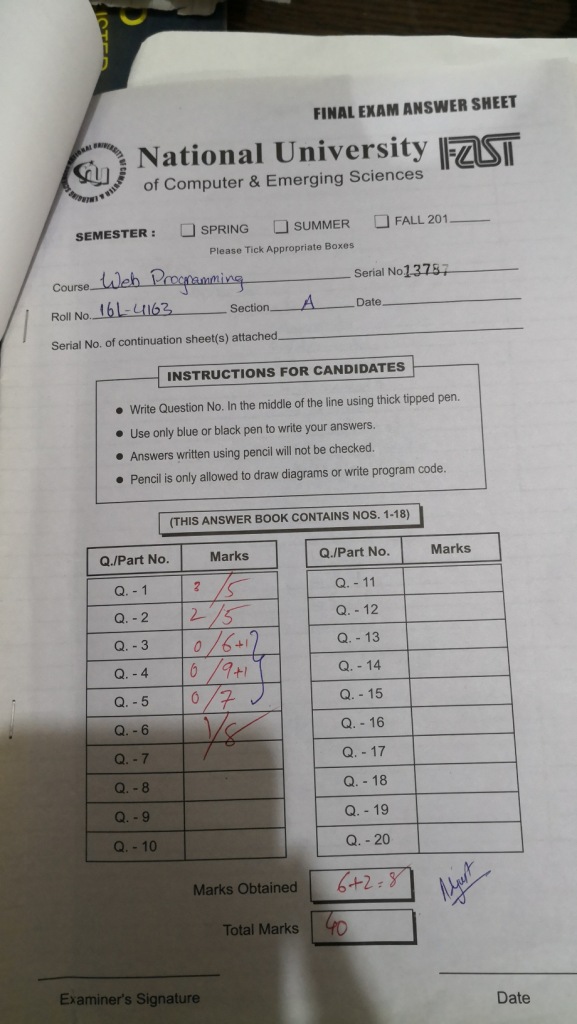 FINAL EXAM ANSWER SHEET
National University
of Computer & Emerging Sciences
FAST
SEMESTER : SPRING SUMMER FALL 201
Please Tick Appropriate Boxes
Course Web Programming Serial No 13787
Roll No. 16L-4163 Section A Date
Serial No. of continuation sheet(s) attached
INSTRUCTIONS FOR CANDIDATES
• Write Question No. In the middle of the line using thick tipped pen.
• Use only blue or black pen to write your answers.
• Answers written using pencil will not be checked.
• Pencil is only allowed to draw diagrams or write program code.
(THIS ANSWER BOOK CONTAINS NOS. 1-18)
Q./Part No. Marks Q./Part No. Marks
Q. - 1 3/5 Q. - 11
Q. - 2 2/5 Q. - 12
Q. - 3 0/6+1 Q. - 13
Q. - 4 0/9+1 Q. - 14
Q. - 5 0/7 Q. - 15
Q. - 6 1/8 Q. - 16
Q. - 7 Q. - 17
Q. - 8 Q. - 18
Q. - 9 Q. - 19
Q. - 10 Q. - 20
Marks Obtained 6+2=8
Total Marks 40
Examiner's Signature Date